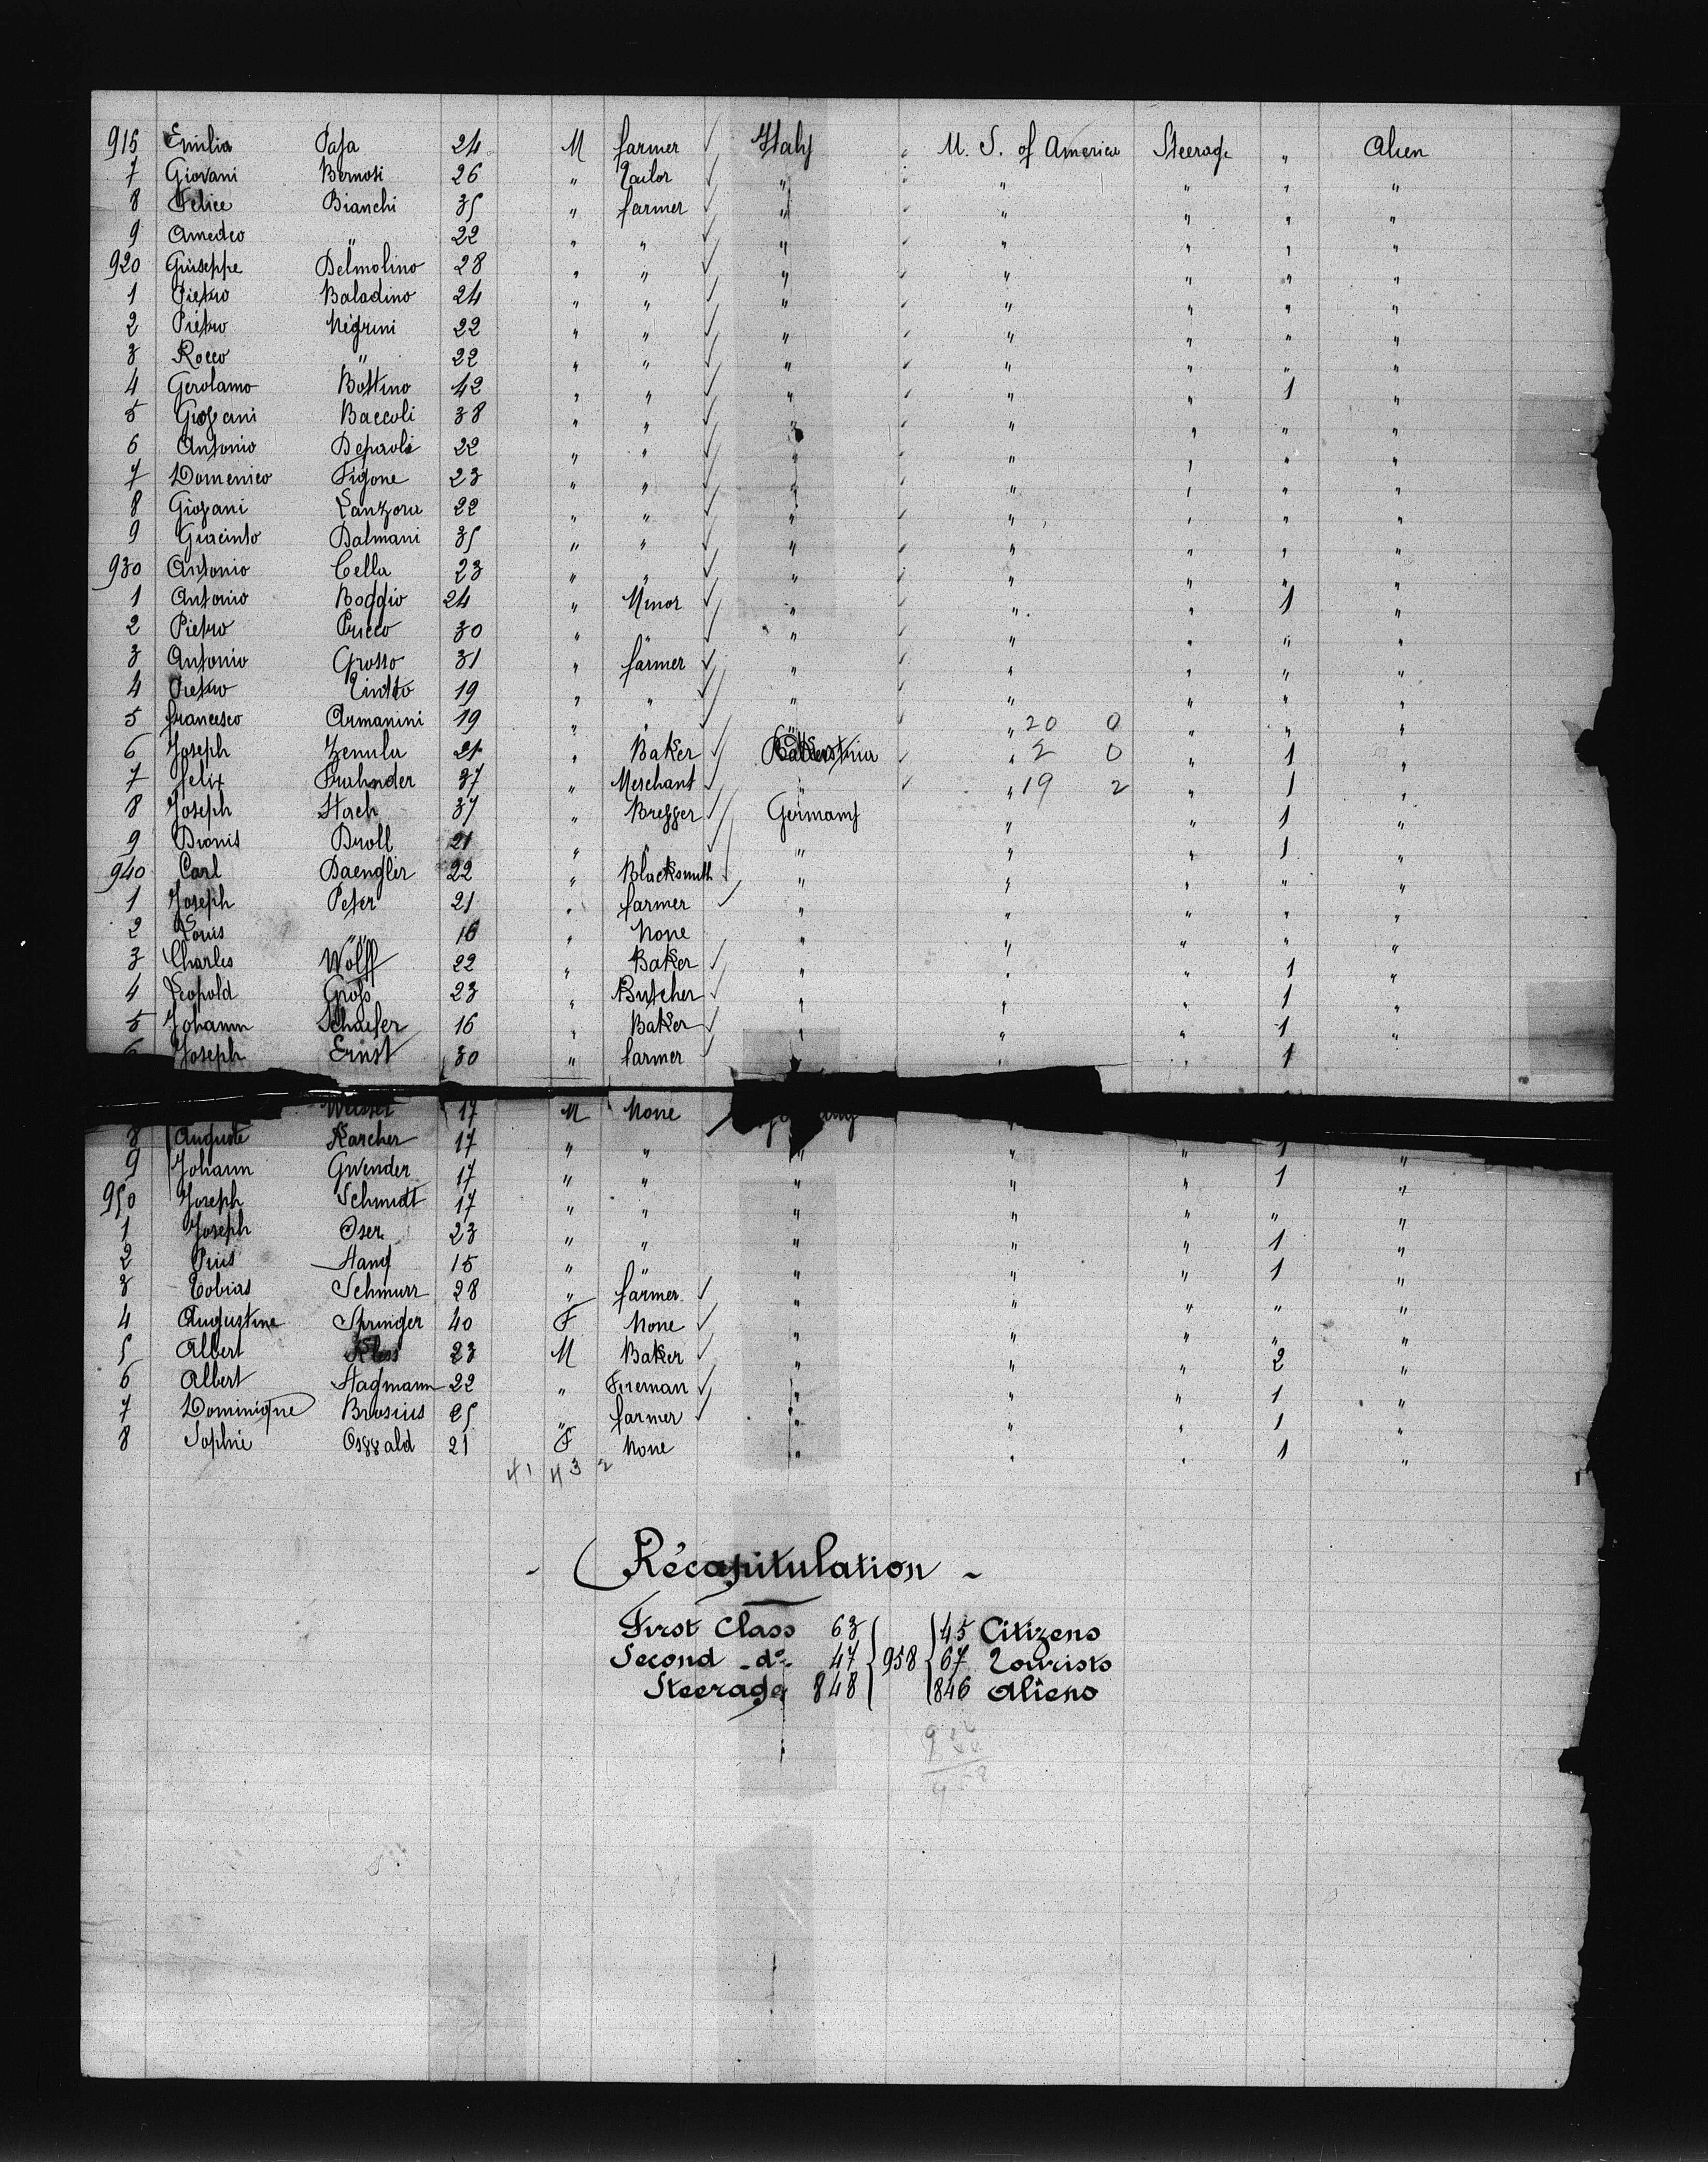 915 Emilia Papa 24 M farmer Italy U. S. of America Steerage " Alien
7 Giovani Bernosi 26 " Tailor " " " " "
8 Felice Bianchi 35 " farmer " " " " "
9 Amedeo " 22 " " " " " " "
920 Giuseppe Delmolino 28 " " " " " " "
1 Pietro Baladino 24 " " " " " " "
2 Pietro Negrini 22 " " " " " " "
3 Rocco " 22 " " " " " " "
4 Gerolamo Bottino 42 " " " " " 1 "
5 Giovani Baccoli 38 " " " " " " "
6 Antonio Depaoli 22 " " " " " " "
7 Domenico Figone 23 " " " " " " "
8 Giovani Lanzora 22 " " " " " " "
9 Giacinto Dalmani 35 " " " " " " "
930 Antonio Cella 23 " " " " " " "
1 Antonio Boggio 24 " Minor " " " 1 "
2 Pietro Pricco 30 " " " " " " "
3 Antonio Grosso 31 " farmer " " " " "
4 Pietro 19 " " " " " " "
5 francesco Armanini 19 " " " " 20 0 " " "
6 Joseph Zemula 21 " Baker " 2 0 " 1 "
7 Felix Fruhnder 37 " Merchant " " 19 2 " 1 "
8 Joseph Stach 37 " Germany " " 1 "
9 Dionis Droll 21 " " " " " 1 "
940 Carl Daengler 22 " Blacksmith " " " " "
1 Joseph Peter 21 " farmer " " " " "
2 Louis " 16 " None " " " " "
3 Charles Wolff 22 " Baker " " " 1 "
4 Leopold Groß 23 " Butcher " " " 1 "
5 Johann Schaefer 16 " Baker " " " 1 "
6 Joseph Ernst 30 " farmer " " " 1
17 M None
8 Auguste Karcher 17 " " " " " 1 "
9 Johann Gwender 17 " " " " " 1 "
950 Joseph Schmidt 17 " " " " " " "
1 Joseph Oser 23 " " " " " 1 "
2 Pius Hang 15 " " " " " 1 "
3 Tobias Schmurr 28 " farmer " " " " "
4 Augustine Springer 40 F None " " " " "
5 Albert 23 M Baker " " " 2 "
6 Albert Hagmann 22 " Fireman " " " 1 "
7 Dominique Brosius 25 " farmer " " " 1 "
8 Sophie Osswald 21 F None " " " 1 "
41 43 2
- Récapitulation -
First Class 63 45 Citizens
Second do 47 958 67 Tourists
Steerage 848 846 Aliens